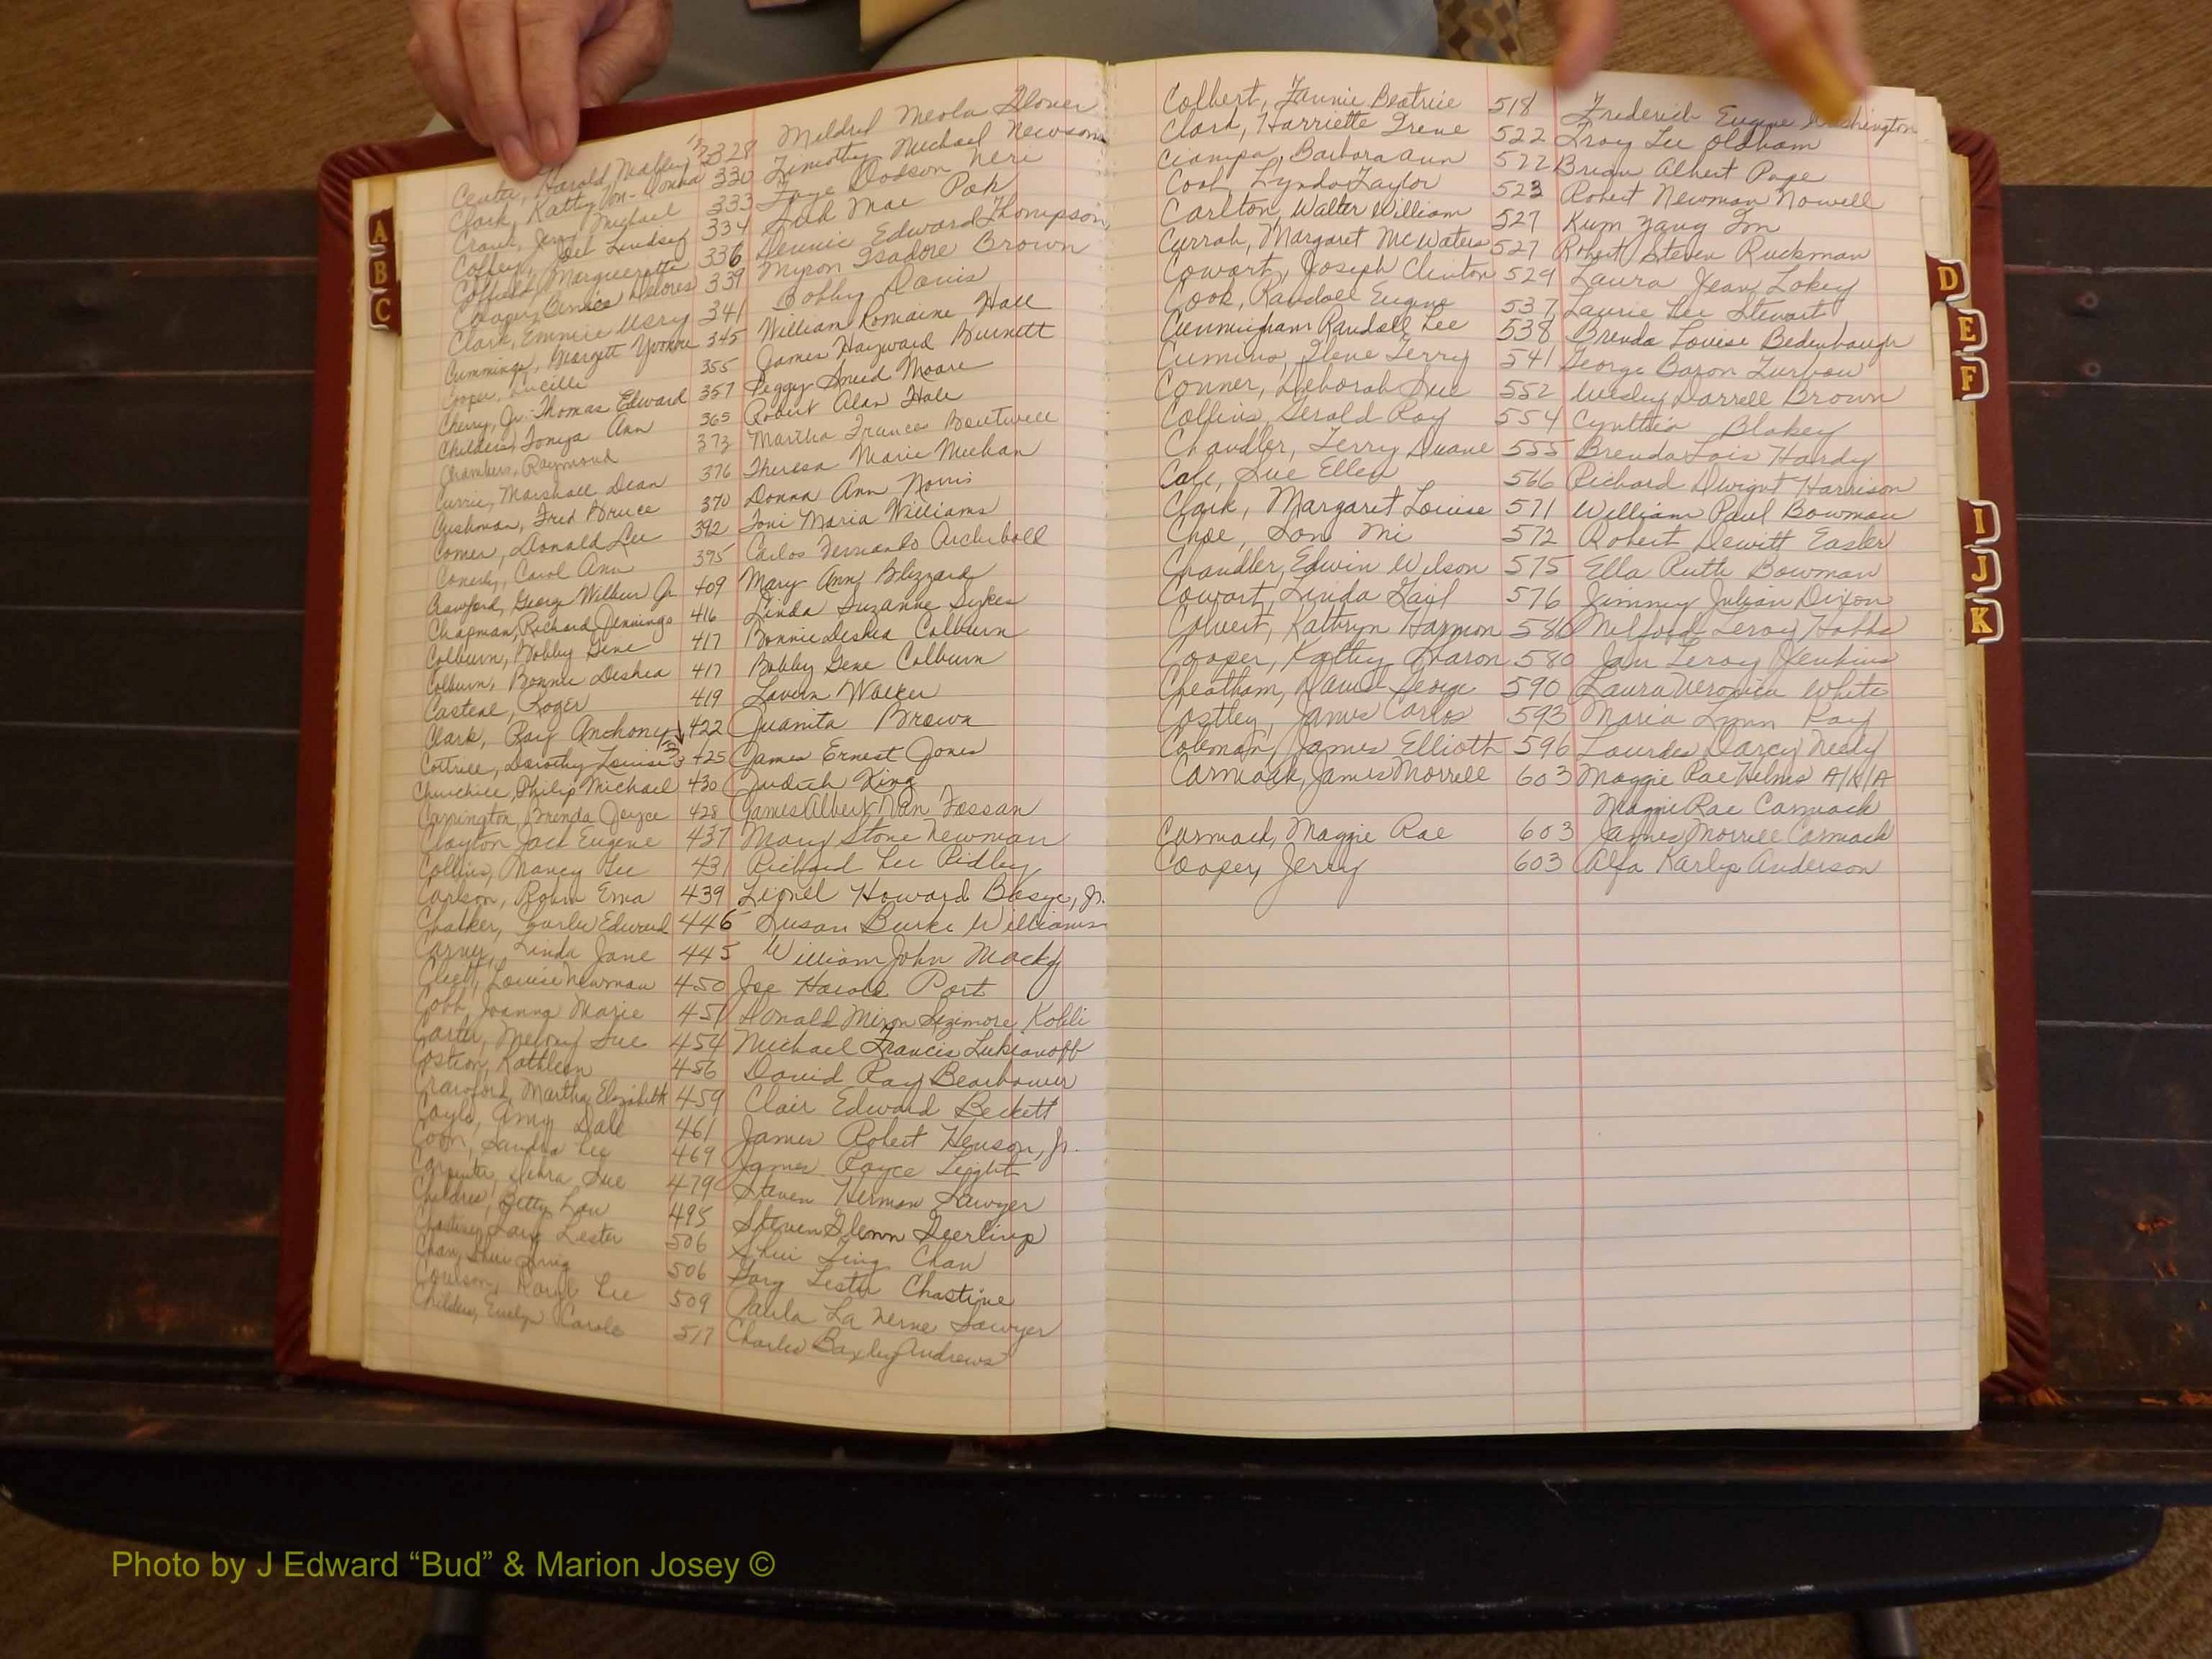 Center, Harold Mabry 328 Mildred Meola Glover
Clark, Kathy 330 Timothy Michael Newsom
Michael 333 Faye Dodson Neri
Coffey, Lindsey 334 Suk Mae Pak
Coffield, Marguerette 336 Dennie Edward Thompson
Cooper, Bernice Delores 339 Myron Isadore Brown
Clark, Emmie Usry 341 Bobby Davis
Cummings, Georgett Yvonne 345 William Romaine Hall
Cooper, Lucille 355 James Hayward Burnett
Cherry, Jr. Thomas Edward 357 Peggy Sneed Moore
Childers, Tonya Ann 365 Robert Alan Hale
Chambers, Raymond 373 Martha Frances Boutwell
Currie, Marshall Dean 376 Theresa Marie Meehan
Cushman, Fred Bruce 370 Donna Ann Norris
Comer, Donald Lee 392 Toni Maria Williams
Conerly, Carol Ann 395 Carlos Fernando Archibold
Crawford, George Wilbur Jr 409 Mary Ann Blizzard
Chapman, Richard Jennings 416 Linda Suzanne Sykes
Colburn, Bobby Gene 417 Bonnie Deshea Colburn
Colburn, Bonnie Deshea 417 Bobby Gene Colburn
Casteal, Roger 419 Lavern Walker
Clark, Ray Anthony 422 Juanita Brown
Cottrell, Dorothy Louise 425 James Ernest Jones
Churchill, Philip Michael 430 Judith King
Carrington, Brenda Joyce 428 James Albert Van Fossan
Clayton Jack Eugene 437 Mary Stone Newman
Collins, Nancy Lee 431 Richard Lee Ridley
Carlson, Robin Erna 439 Lionel Howard Basye, Jr.
Chalker, Edward 446 Susan Burke Williams
Carney, Linda Jane 445 William John Macky
Clegg, Louise Newman 450 Joe Harold Port
Cobb, Joanna Marie 451 Donald Mixon Sizimore Kobli
Carter, Melony Sue 454 Michael Francis Lukianoff
Costion, Kathleen 456 David Ray Bearbower
Crawford, Martha Elizabeth 459 Clair Edward Beckett
Coyle, Amy Dale 461 James Robert Henson, Jr.
Coon, Sandra Lee 469 James Royce Light
Carpenter, Debra Sue 479 Steven Herman Sawyer
Childres, Betty Lou 495 Steven Glenn Geerling
Chastine, Gary Lester 506 Shui Sing Chan
Chan, Shui Sing 506 Gary Lester Chastine
Coulson, Daryl Lee 509 Paula La Verne Sawyer
Childers, Evelyn Carole 517 Charles Baxley Andrews
Colbert, Fannie Beatrice 518 Frederich Eugene Washington
Clark, Harriette Irene 522 Troy Lee Oldham
Ciampa, Barbara Ann 522 Brian Albert Page
Cook, Lynda Taylor 523 Robert Newman Nowell
Carlton, Walter William 527 Kum Yang Im
Currah, Margaret McWaters 527 Robert Steven Ruckman
Cowart, Joseph Clinton 529 Laura Jean Lokey
Cook, Randall Eugene 537 Laurie Lee Stewart
Cunningham Randall Lee 538 Brenda Louise Bedenbaugh
Cumino, Ilene Terry 541 George Baron Turbow
Conner, Deborah Sue 552 Wesley Darrell Brown
Collins, Gerald Roy 554 Cynthia Blakey
Chandler, Terry Duane 555 Brenda Lois Hardy
Cale, Sue Ellen 566 Richard Dwight Harrison
Clark, Margaret Louise 571 William Paul Bowman
Choe, Son Mi 572 Robert Dewitt Easler
Chandler, Edwin Wilson 575 Ella Ruth Bowman
Cowart, Linda Gail 576 Jimmy Julian Dixon
Colvert, Kathryn Harmon 580 Milford Leroy Hobbs
Cooper, Kathy Sharon 580 Jan Leroy Jenkins
Cheatham, David George 590 Laura Veronica White
Costley, James Carlos 593 Maria Lynn Ray
Coleman, James Elliott 596 Lourdes Darcy Neely
Carmack, James Morrell 603 Maggie Rae Helms A/K/A
Maggie Rae Carmack
Carmack, Maggie Rae 603 James Morrell Carmack
Cooper, Jerry 603 Alfa Karlyn Anderson
A
B
C
D
E
F
I
J
K
Photo by J Edward “Bud” & Marion Josey ©